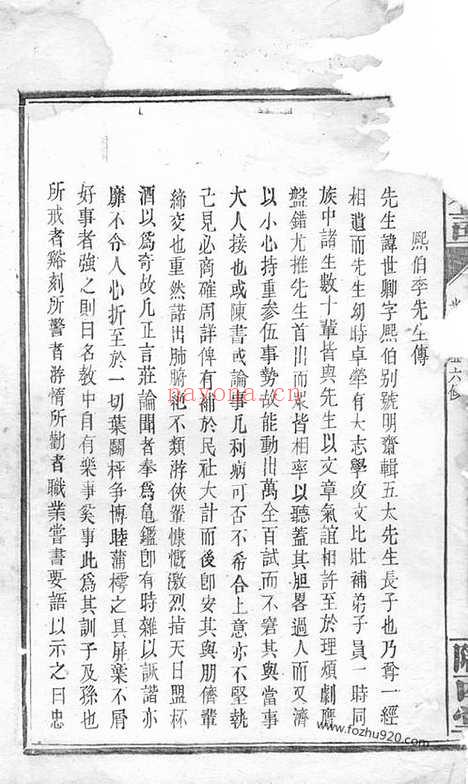 熙伯李先生傳
先生諱世卿字熙伯别號明齋輯五太先生長子也乃尊一經
相遺而先生幼時卓犖有大志學攻文比壯補弟子員一時同
族中諸生數十輩皆與先生以文章氣誼相許至於理煩劇應
盤錯尤推先生首出而衆皆相率以聽蓋其胆畧過人而又濟
以小心持重參伍事勢故能動出萬全百試而不窘其與當事
大人接也或陳書或論事凡利病可否不希合上意亦不堅執
己見必商確周詳俾有補於民社大計而後即安其與朋儕輩
締交也重然諾出肺腑祀不類游俠輩慷慨激烈指天日盟杯
酒以爲奇故凡正言莊論聞者奉爲龟鑑卽有時雜以詼諧亦
靡不令人心折至於一切葉鬭枰争博睦蒲樗之具屏棄不屑
好事者強之則曰名教中自有樂事奚事此爲其訓子及孫也
所戒者谿刻所警者游惰所勸者職業嘗書要語以示之曰忠
六修
nayona.cn
www.fozhu920.com